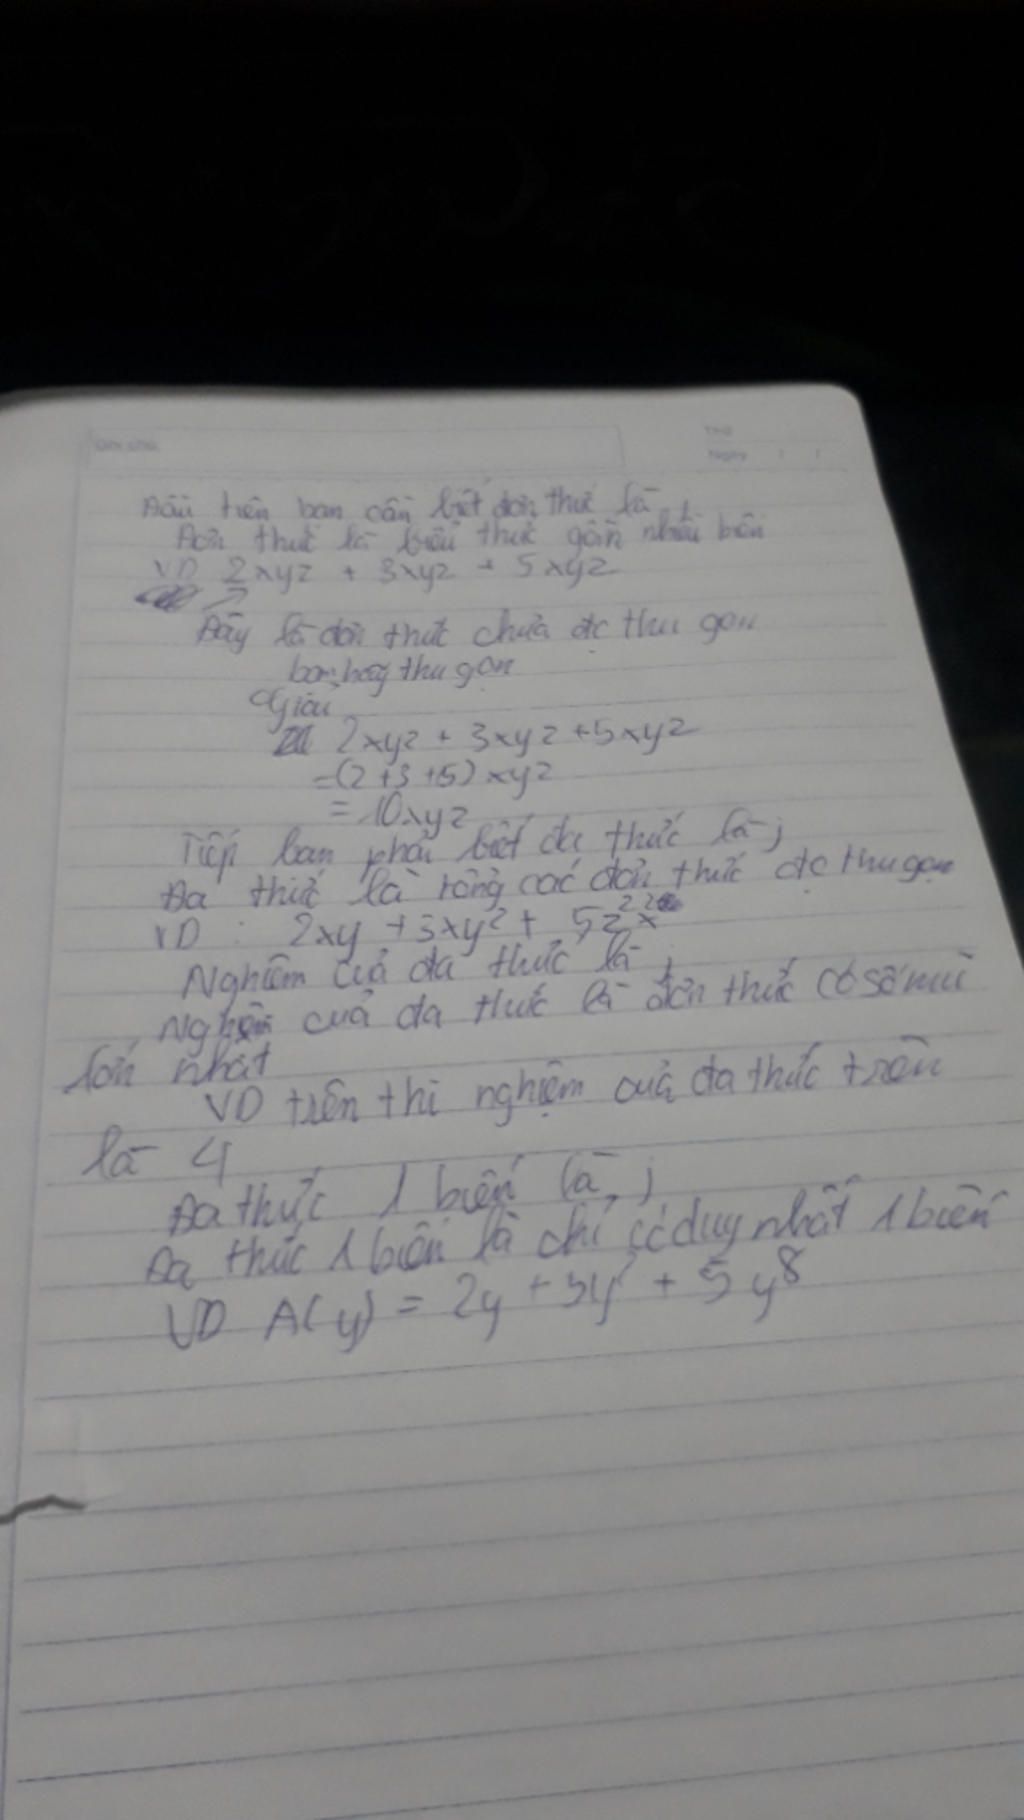 Ghi chú
Thứ
Ngày / /
Đầu tiên bạn cần biết đơn thức là
Đơn thức là biểu thức gồm nhiều biến
VD 2xyz + 3xyz + 5xyz
Đây là đơn thức chưa đc thu gọn
bạn hãy thu gọn
Giải
2xyz + 3xyz + 5xyz
= (2 + 3 + 5) xyz
= 10xyz
Tiếp bạn phải biết đa thức là ;
Đa thức là tổng các đơn thức đc thu gọn
VD : 2xy + 3xyz + 5z²x²
Nghiệm của đa thức là ;
Nghiệm của đa thức là đơn thức có số mũ
lớn nhất
VD trên thì nghiệm của đa thức trên
là 4
Đa thức 1 biến là ;
Đa thức 1 biến là chỉ có duy nhất 1 biến
VD A(y) = 2y + + 5y⁸